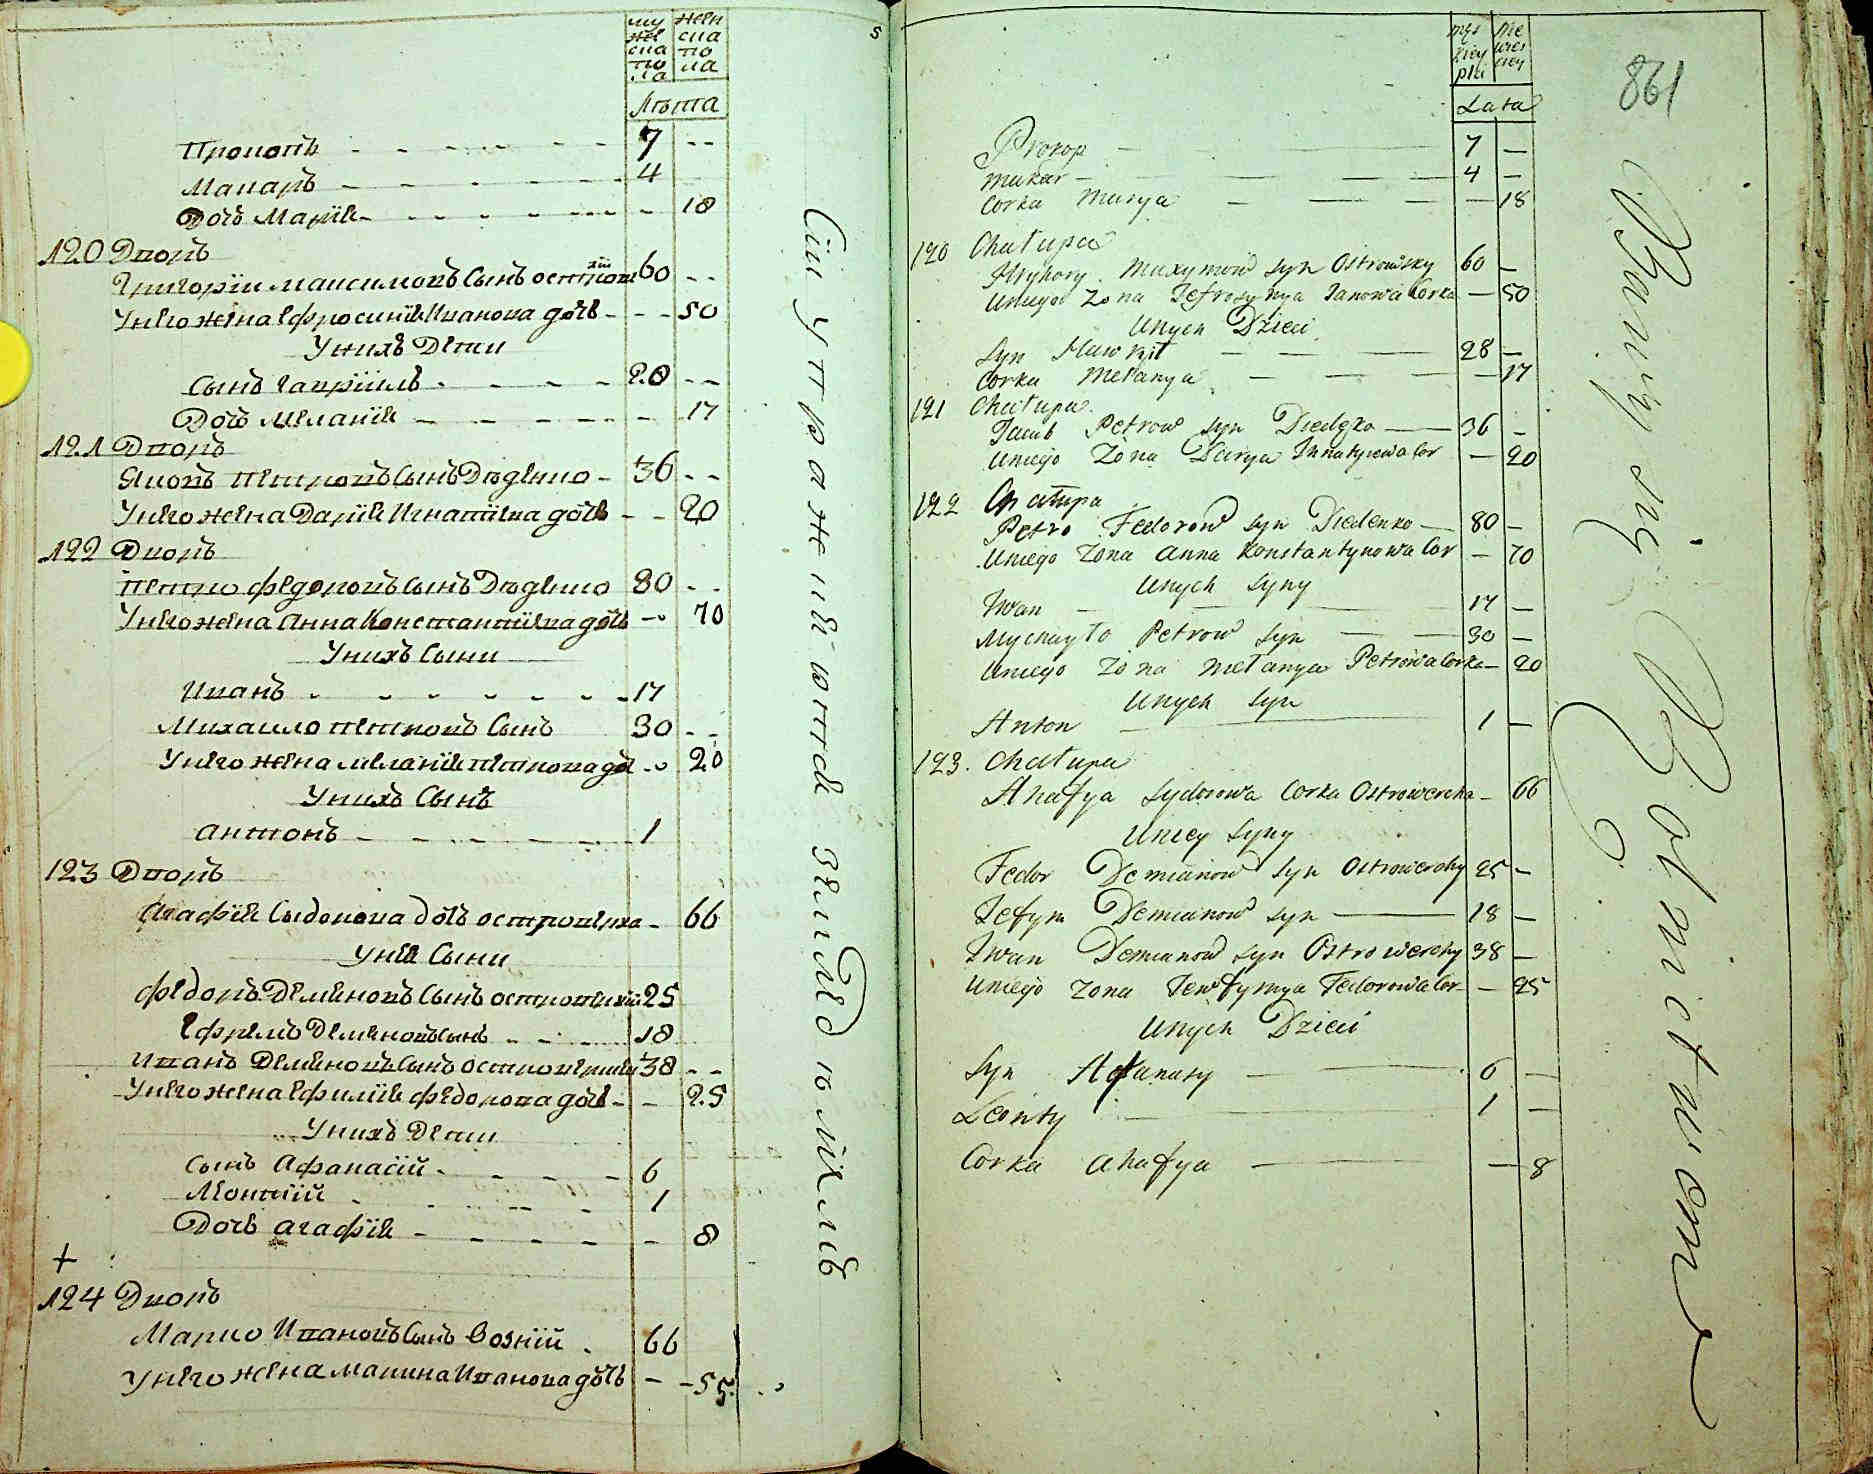 мужеска пола женска пола
Лѣта
Прокопъ 7 --
Макаръ 4
Дочь Марія - 18
120 Дворъ
Григорій Максимовъ Сынъ Остров 60 --
У него жена Ефросинія Иванова дочь - 50
У нихъ Дети
Сынъ Гавріилъ 28 --
Дочь Меланія - 17
121 Дворъ
Яковъ Петровъ Сынъ Дѣденко - 36 --
У него жена Дарія Игнатіева дочь - 20
122 Дворъ
Петро Федоровъ Сынъ Дѣденко 80 --
У него жена Анна Константіева дочь - 70
У нихъ Сыни
Иванъ 17
Михаило Петровъ Сынъ 30 --
У него жена Меланія Петрова до - 20
У нихъ Сынъ
Антонъ 1
123 Дворъ
Агафія Сидорова дочь Островерха - 66
У нея Сыни
Федоръ Деменовъ Сынъ Островерхій 25
Ефремъ Деменовъ Сынъ 18
Иванъ Деменовъ Сынъ Островерхій 38 --
У него жена Ефимія Федорова дочь - 25
У нихъ Дети
Сынъ Афанасій 6
Леонтій 1
Дочь Агафія - 8
+
124 Дворъ
Марко Ивановъ Сынъ Возній 66
У него жена Марина Иванова дочь - 55
Сіи утраженіи
землею
5
męskiey płci żenskiey
Lata
861
Prokop 7 —
Makar 4 —
Corka Marya — 18
120 Chałupa
Hryhory Maxymow syn Ostrowsky 60 —
Uniego Zona Jefrosynya Janowa Corka — 50
Unych Dzieci
Syn Hawryił 28 —
Corka Mełanya — 17
121 Chałupa
Jacub Petrow syn Diedęko 36 —
Uniego Zona Darya Ihnatyiewa Cor — 20
122 Chałupa
Petro Fedorow syn Diedenko 80 —
Uniego Zona Anna Konstantynowa Cor — 70
Unych Syny
Iwan 17 —
Mychayło Petrow syn 30 —
Uniego Zona Mełanya Petrowa Corka — 20
Unych Syn
Anton 1 —
123. Chałupa
Ahafya Sydorowa Corka Ostrowercha — 66
Uniey Syny
Fedor Demianow syn Ostrowerchy 25 —
Jefym Demianow syn 18 —
Iwan Demianow syn Ostrowerchy 38 —
Uniego Zona Jewfymya Fedorowa Cor — 25
Unych Dzieci
Syn Afanasy 6 —
Leonty 1 —
Corka Ahafya — 8